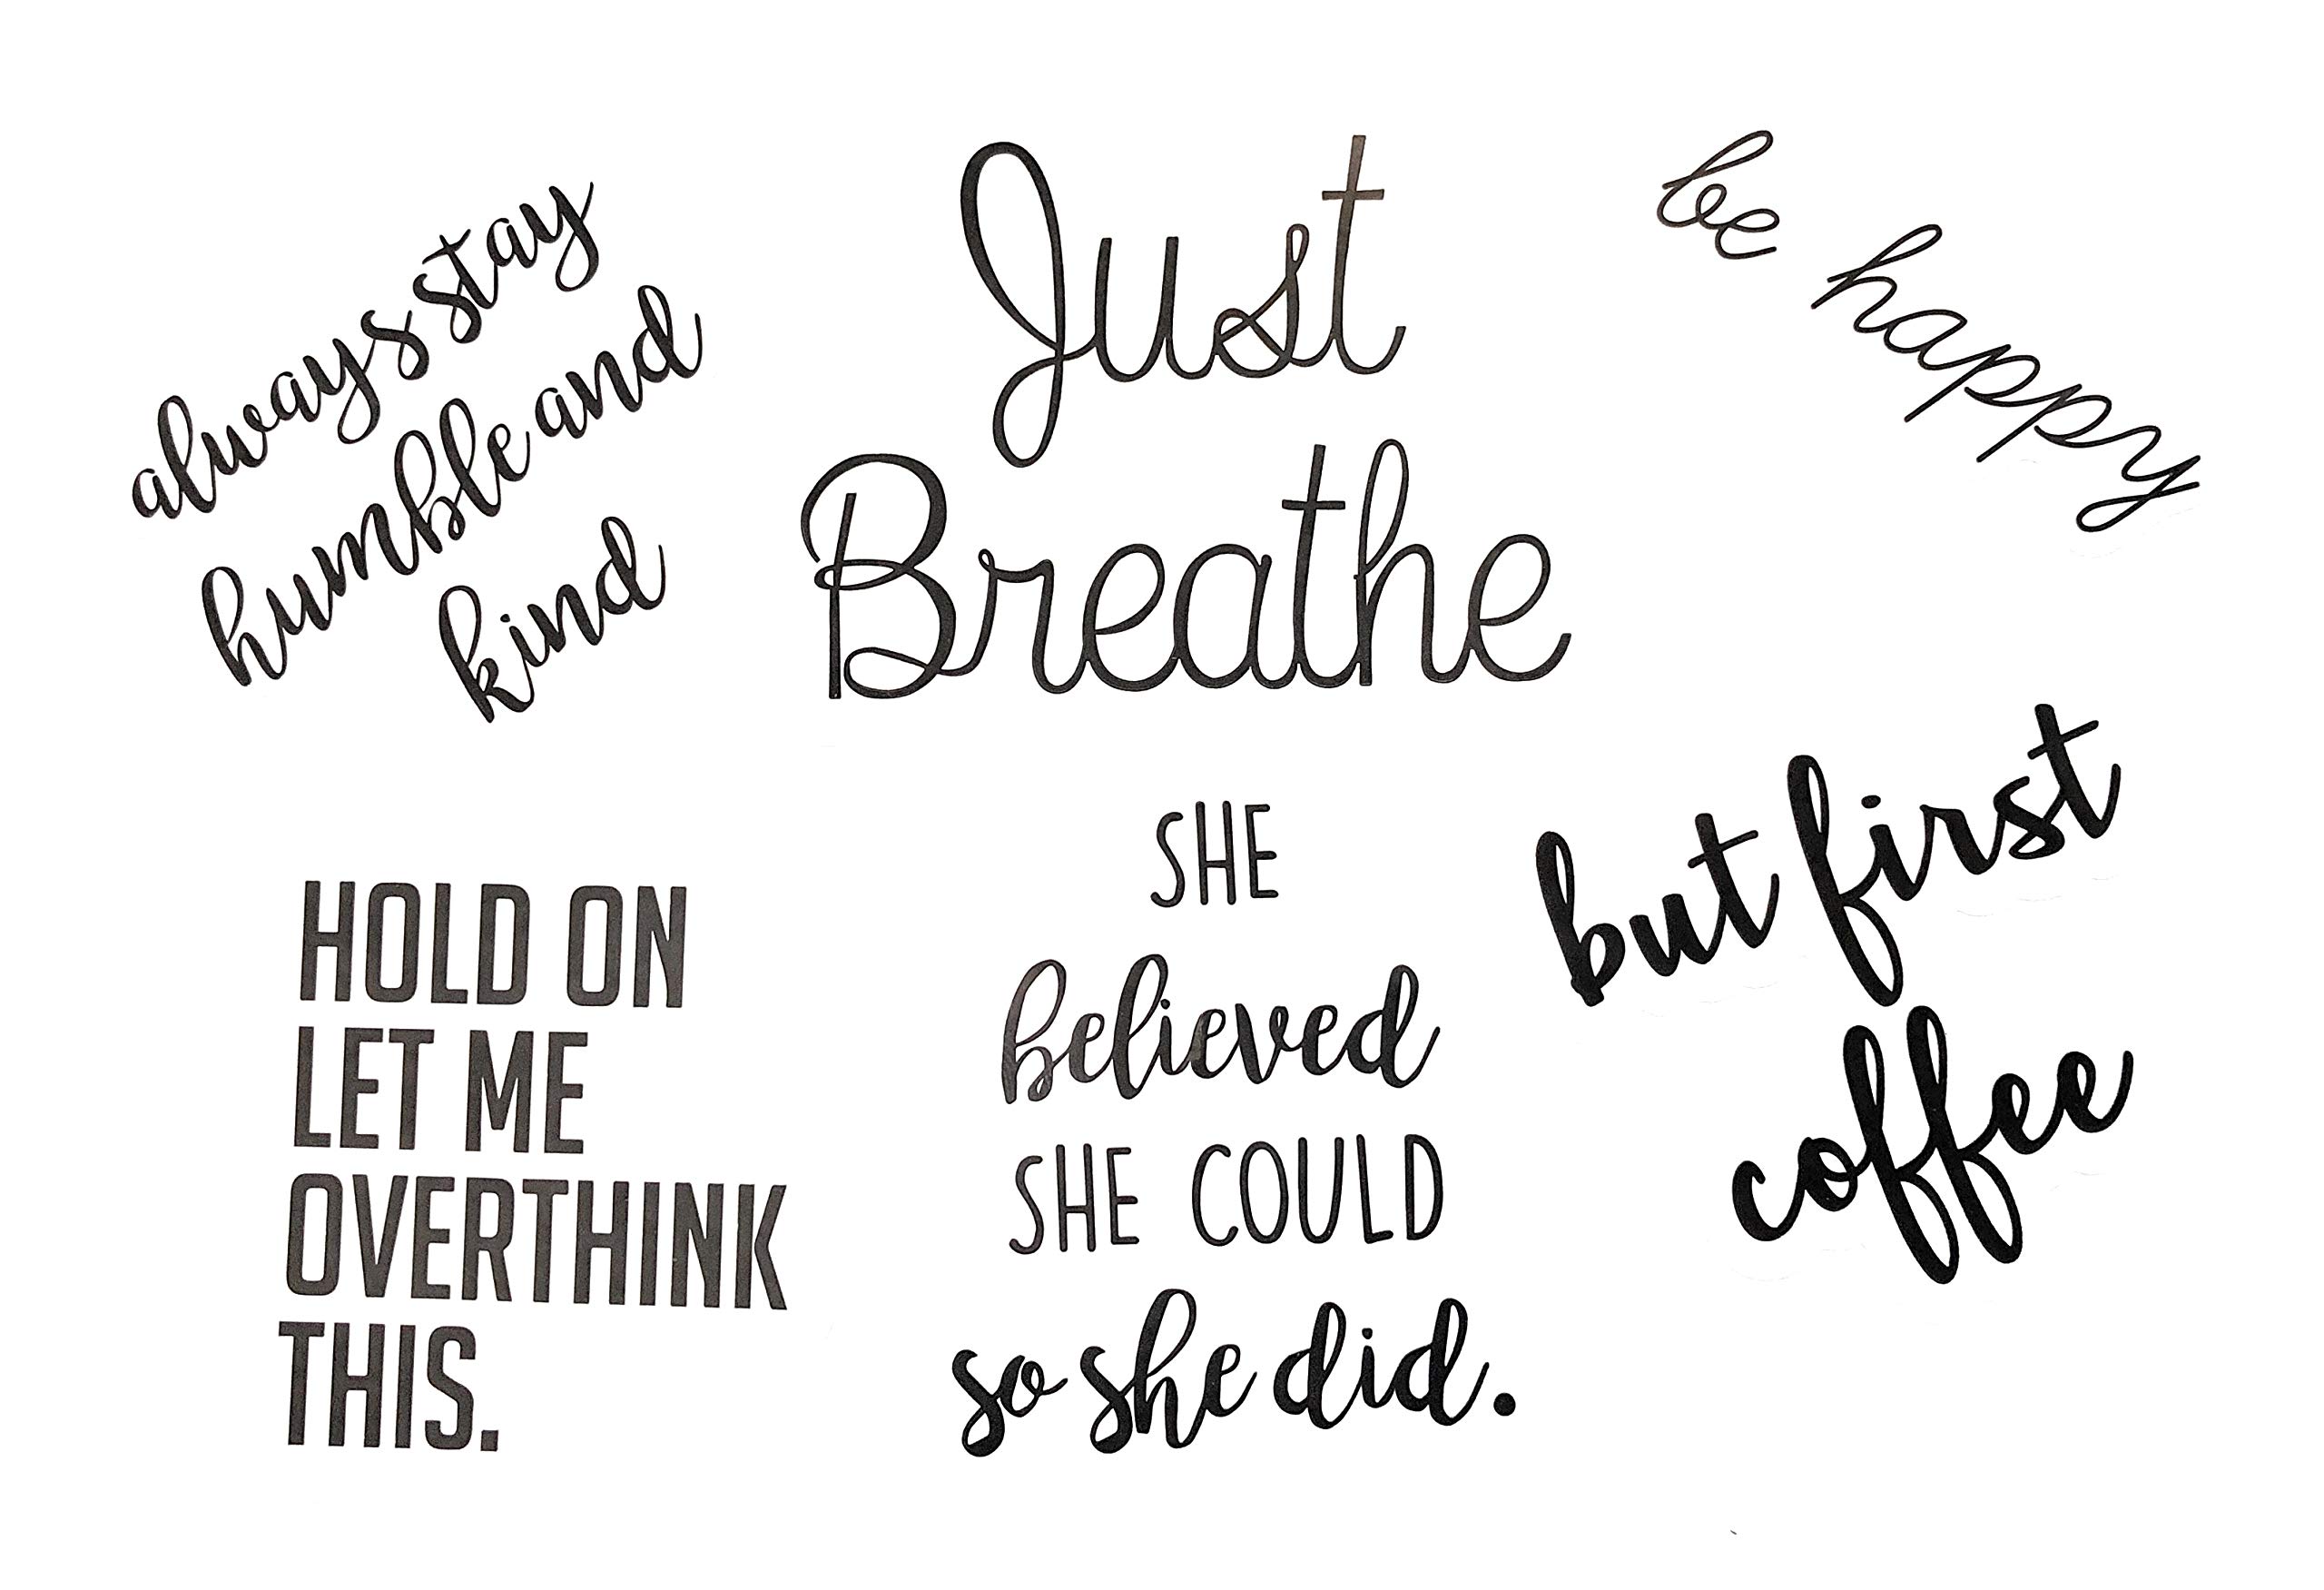 always stay
humble and
kind
Just
Breathe
be happy
HOLD ON
LET ME
OVERTHINK
THIS.
SHE
believed
SHE COULD
so she did.
but first
coffee